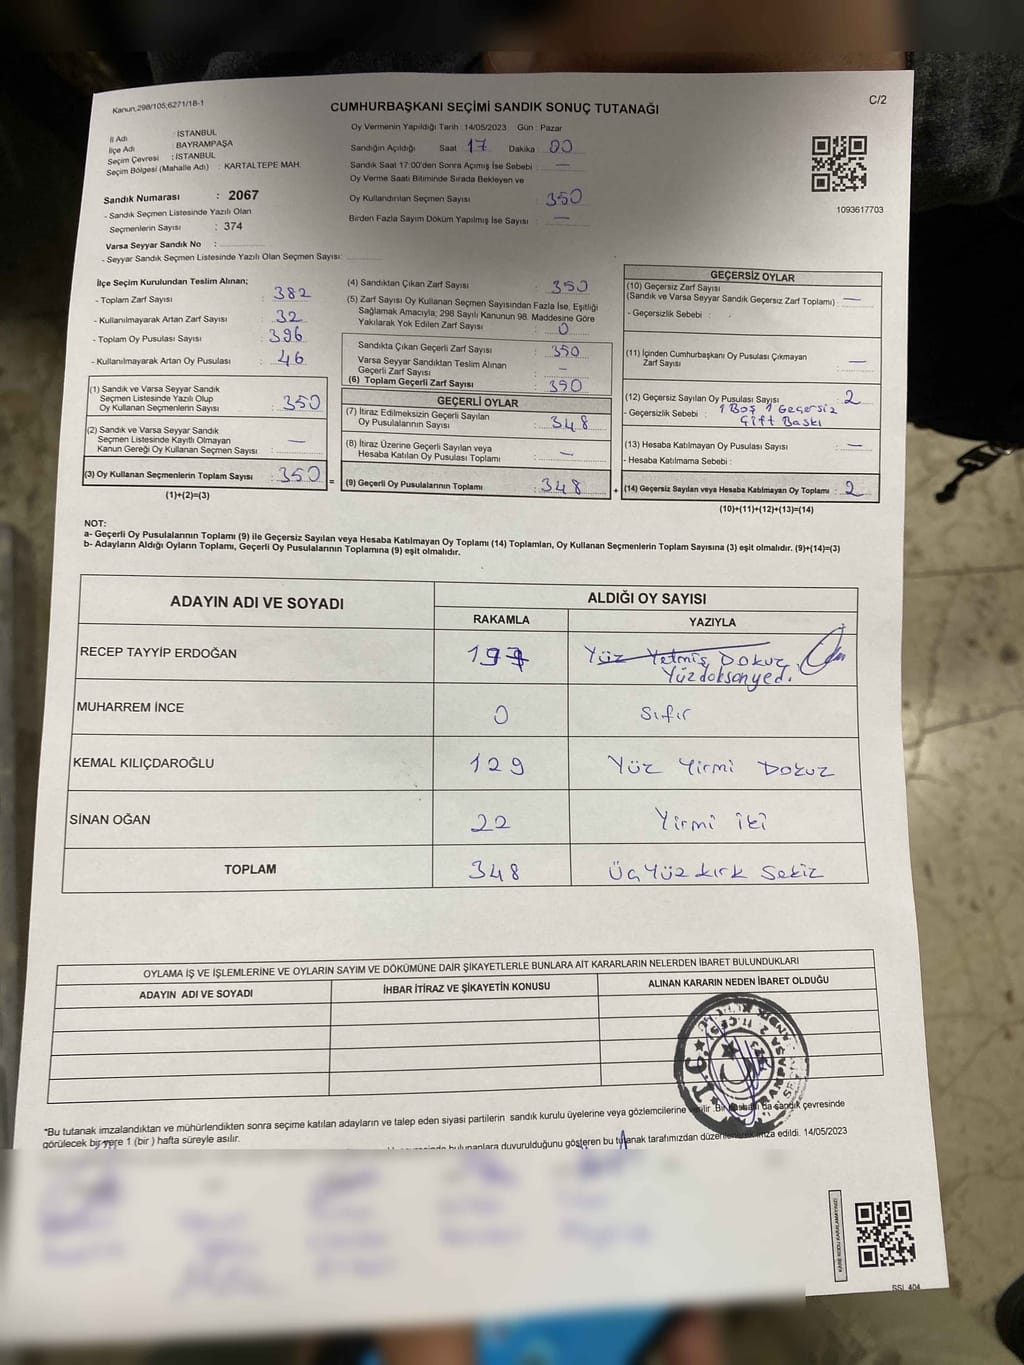 Kanun,298/105;6271/18-1
CUMHURBAŞKANI SEÇİMİ SANDIK SONUÇ TUTANAĞI
C/2
İl Adı : İSTANBUL
İlçe Adı : BAYRAMPAŞA
Seçim Çevresi : İSTANBUL
Seçim Bölgesi (Mahalle Adı) : KARTALTEPE MAH.
Sandık Numarası : 2067
- Sandık Seçmen Listesinde Yazılı Olan
Seçmenlerin Sayısı : 374
Varsa Seyyar Sandık No :
- Seyyar Sandık Seçmen Listesinde Yazılı Olan Seçmen Sayısı:
Oy Vermenin Yapıldığı Tarih : 14/05/2023 Gün : Pazar
Sandığın Açıldığı Saat 17 Dakika 00
Sandık Saat 17:00'den Sonra Açımış İse Sebebi : —
Oy Verme Saati Bitiminde Sırada Bekleyen ve
Oy Kullandırılan Seçmen Sayısı : 350
Birden Fazla Sayım Döküm Yapılmış İse Sayısı : —
1093617703
İlçe Seçim Kurulundan Teslim Alınan;
- Toplam Zarf Sayısı : 382
- Kullanılmayarak Artan Zarf Sayısı : 32
- Toplam Oy Pusulası Sayısı : 396
- Kullanılmayarak Artan Oy Pusulası : 46
(1) Sandık ve Varsa Seyyar Sandık
Seçmen Listesinde Yazılı Olup
Oy Kullanan Seçmenlerin Sayısı : 350
(2) Sandık ve Varsa Seyyar Sandık
Seçmen Listesinde Kayıtlı Olmayan
Kanun Gereği Oy Kullanan Seçmen Sayısı : —
(3) Oy Kullanan Seçmenlerin Toplam Sayısı : 350
(1)+(2)=(3)
(4) Sandıktan Çıkan Zarf Sayısı : 350
(5) Zarf Sayısı Oy Kullanan Seçmen Sayısından Fazla İse, Eşitliği
Sağlamak Amacıyla, 298 Sayılı Kanunun 98. Maddesine Göre
Yakılarak Yok Edilen Zarf Sayısı : 0
Sandıkta Çıkan Geçerli Zarf Sayısı : 350
Varsa Seyyar Sandıktan Teslim Alınan
Geçerli Zarf Sayısı : —
(6) Toplam Geçerli Zarf Sayısı : 350
GEÇERLİ OYLAR
(7) İtiraz Edilmeksizin Geçerli Sayılan
Oy Pusulasının Sayısı : 348
(8) İtiraz Üzerine Geçerli Sayılan veya
Hesaba Katılan Oy Pusulası Toplamı : —
(9) Geçerli Oy Pusulalarının Toplamı : 348
=
+
GEÇERSİZ OYLAR
(10) Geçersiz Zarf Sayısı
(Sandık ve Varsa Seyyar Sandık Geçersiz Zarf Toplamı) : —
- Geçersizlik Sebebi :
(11) İçinden Cumhurbaşkanı Oy Pusulası Çıkmayan
Zarf Sayısı : —
(12) Geçersiz Sayılan Oy Pusulası Sayısı : 2
- Geçersizlik Sebebi : 1 Boş 1 Geçersiz
Çift Baskı
(13) Hesaba Katılmayan Oy Pusulası Sayısı : —
- Hesaba Katılmama Sebebi :
(14) Geçersiz Sayılan veya Hesaba Katılmayan Oy Toplamı : 2
(10)+(11)+(12)+(13)=(14)
NOT:
a- Geçerli Oy Pusulalarının Toplamı (9) ile Geçersiz Sayılan veya Hesaba Katılmayan Oy Toplamı (14) Toplamları, Oy Kullanan Seçmenlerin Toplam Sayısına (3) eşit olmalıdır. (9)+(14)=(3)
b- Adayların Aldığı Oyların Toplamı, Geçerli Oy Pusulalarının Toplamına (9) eşit olmalıdır.
ADAYIN ADI VE SOYADI
ALDIĞI OY SAYISI
RAKAMLA YAZIYLA
RECEP TAYYİP ERDOĞAN 197 Yüz Yetmiş Dokuz
Yüzdoksanyedi
MUHARREM İNCE 0 Sıfır
KEMAL KILIÇDAROĞLU 129 Yüz Yirmi Dokuz
SİNAN OĞAN 22 Yirmi iki
TOPLAM 348 ÜçYüz kırk Sekiz
OYLAMA İŞ VE İŞLEMLERİNE VE OYLARIN SAYIM VE DÖKÜMÜNE DAİR ŞİKAYETLERLE BUNLARA AİT KARARLARIN NELERDEN İBARET BULUNDUKLARI
ADAYIN ADI VE SOYADI İHBAR İTİRAZ VE ŞİKAYETİN KONUSU ALINAN KARARIN NEDEN İBARET OLDUĞU
T.C.
*Bu tutanak imzalandıktan ve mühürlendikten sonra seçime katılan adayların ve talep eden siyasi partilerin sandık kurulu üyelerine veya gözlemcilerine verilir. Bir da sandık çevresinde
görülecek bir yere 1 (bir ) hafta süreyle asılır.
bulunanlara duyurulduğunu gösteren bu tutanak tarafımızdan düzenlenerek imza edildi. 14/05/2023
KARE KODU KARALAMAYINIZ!
SSI_404